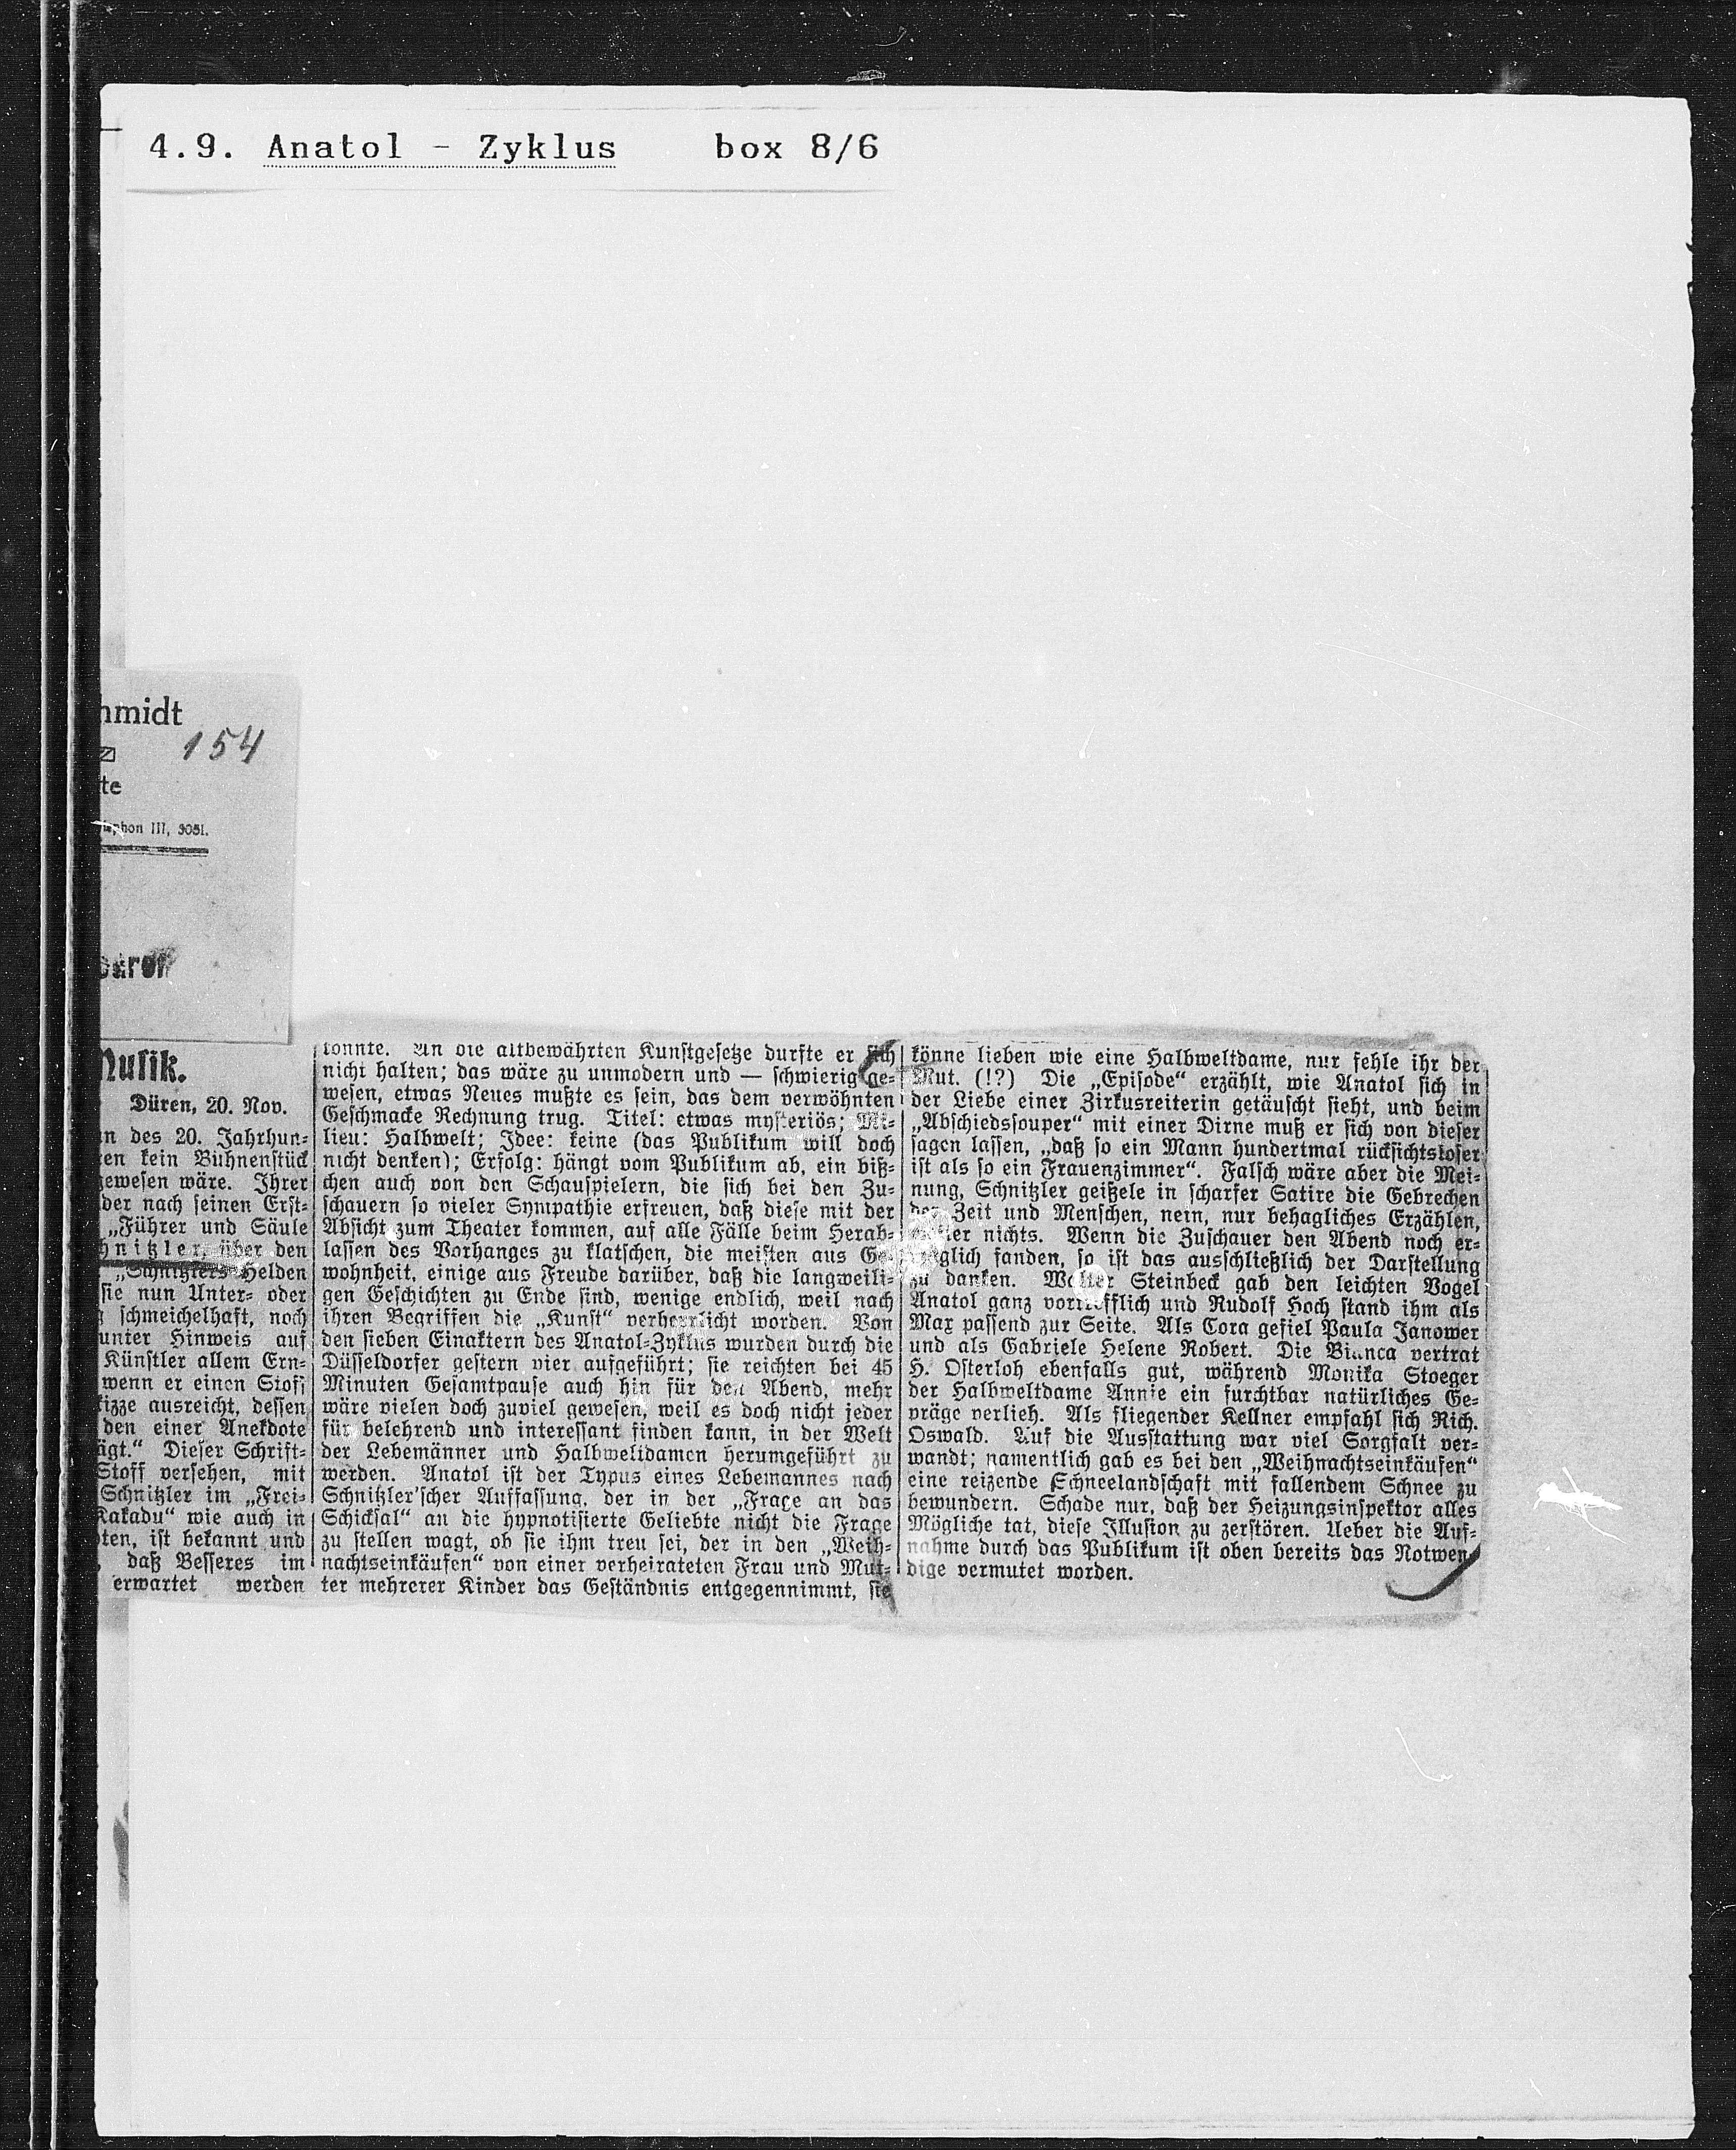 4.9. Anatol - Zyklus box 8/6
hmidt
154
te
phon III, 3051.
Musik.
Düren, 20. Nov.
n des 20. Jahrhun-
en kein Bühnenstück
gewesen wäre. Ihrer
der nach seinen Erst-
„Führer und Säule
hnitzler, über den
„Schnitzlers Helden
sie nun Unter- oder
schmeichelhaft, noch
unter Hinweis auf
Künstler allem Ern-
wenn er einen Stoff
kizze ausreicht, dessen
den einer Anekdote
ägt.“ Dieser Schrift-
Stoff versehen, mit
Schnitzler im „Frei-
Kakadu“ wie auch in
ten, ist bekannt und
, daß Besseres im
erwartet werden
konnte. An die altbewährten Kunstgesetze durfte er sich
nicht halten; das wäre zu unmodern und — schwierig ge-
wesen, etwas Neues mußte es sein, das dem verwöhnten
Geschmacke Rechnung trug. Titel: etwas mysteriös; Mi-
lieu: Halbwelt; Idee: keine (das Publikum will doch
nicht denken); Erfolg: hängt vom Publikum ab, ein biß-
chen auch von den Schauspielern, die sich bei den Zu-
schauern so vieler Sympathie erfreuen, daß diese mit der
Absicht zum Theater kommen, auf alle Fälle beim Herab-
lassen des Vorhanges zu klatschen, die meisten aus Ge-
wohnheit, einige aus Freude darüber, daß die langweili-
gen Geschichten zu Ende sind, wenige endlich, weil nach
ihren Begriffen die „Kunst“ verherrlicht worden. Von
den sieben Einaktern des Anatol-Zyklus wurden durch die
Düsseldorfer gestern vier aufgeführt; sie reichten bei 45
Minuten Gesamtpause auch hin für den Abend, mehr
wäre vielen doch zuviel gewesen, weil es doch nicht jeder
für belehrend und interessant finden kann, in der Welt
der Lebemänner und Halbweltdamen herumgeführt zu
werden. Anatol ist der Typus eines Lebemannes nach
Schnitzler'scher Auffassung, der in der „Frage an das
Schicksal“ an die hypnotisierte Geliebte nicht die Frage
zu stellen wagt, ob sie ihm treu sei, der in den „Weih-
nachtseinkäufen“ von einer verheirateten Frau und Mut-
ter mehrerer Kinder das Geständnis entgegennimmt, sie
könne lieben wie eine Halbweltdame, nur fehle ihr der
Mut. (!?) Die „Episode“ erzählt, wie Anatol sich in
der Liebe einer Zirkusreiterin getäuscht sieht, und beim
„Abschiedssouper“ mit einer Dirne muß er sich von dieser
sagen lassen, „daß so ein Mann hundertmal rücksichtsloser
ist als so ein Frauenzimmer“. Falsch wäre aber die Mei-
nung, Schnitzler geißele in scharfer Satire die Gebrechen
der Zeit und Menschen, nein, nur behagliches Erzählen,
weiter nichts. Wenn die Zuschauer den Abend noch er-
träglich fanden, so ist das ausschließlich der Darstellung
zu danken. Walter Steinbeck gab den leichten Vogel
Anatol ganz vortrefflich und Rudolf Hoch stand ihm als
Max passend zur Seite. Als Cora gefiel Paula Janower
und als Gabriele Helene Robert. Die Bianca vertrat
H. Osterloh ebenfalls gut, während Monika Stoeger
der Halbweltdame Annie ein furchtbar natürliches Ge-
präge verlieh. Als fliegender Kellner empfahl sich Rich.
Oswald. Auf die Ausstattung war viel Sorgfalt ver-
wandt; namentlich gab es bei den „Weihnachtseinkäufen“
eine reizende Schneelandschaft mit fallendem Schnee zu
bewundern. Schade nur, daß der Heizungsinspektor alles
Mögliche tat, diese Illusion zu zerstören. Ueber die Auf-
nahme durch das Publikum ist oben bereits das Notwen-
dige vermutet worden.